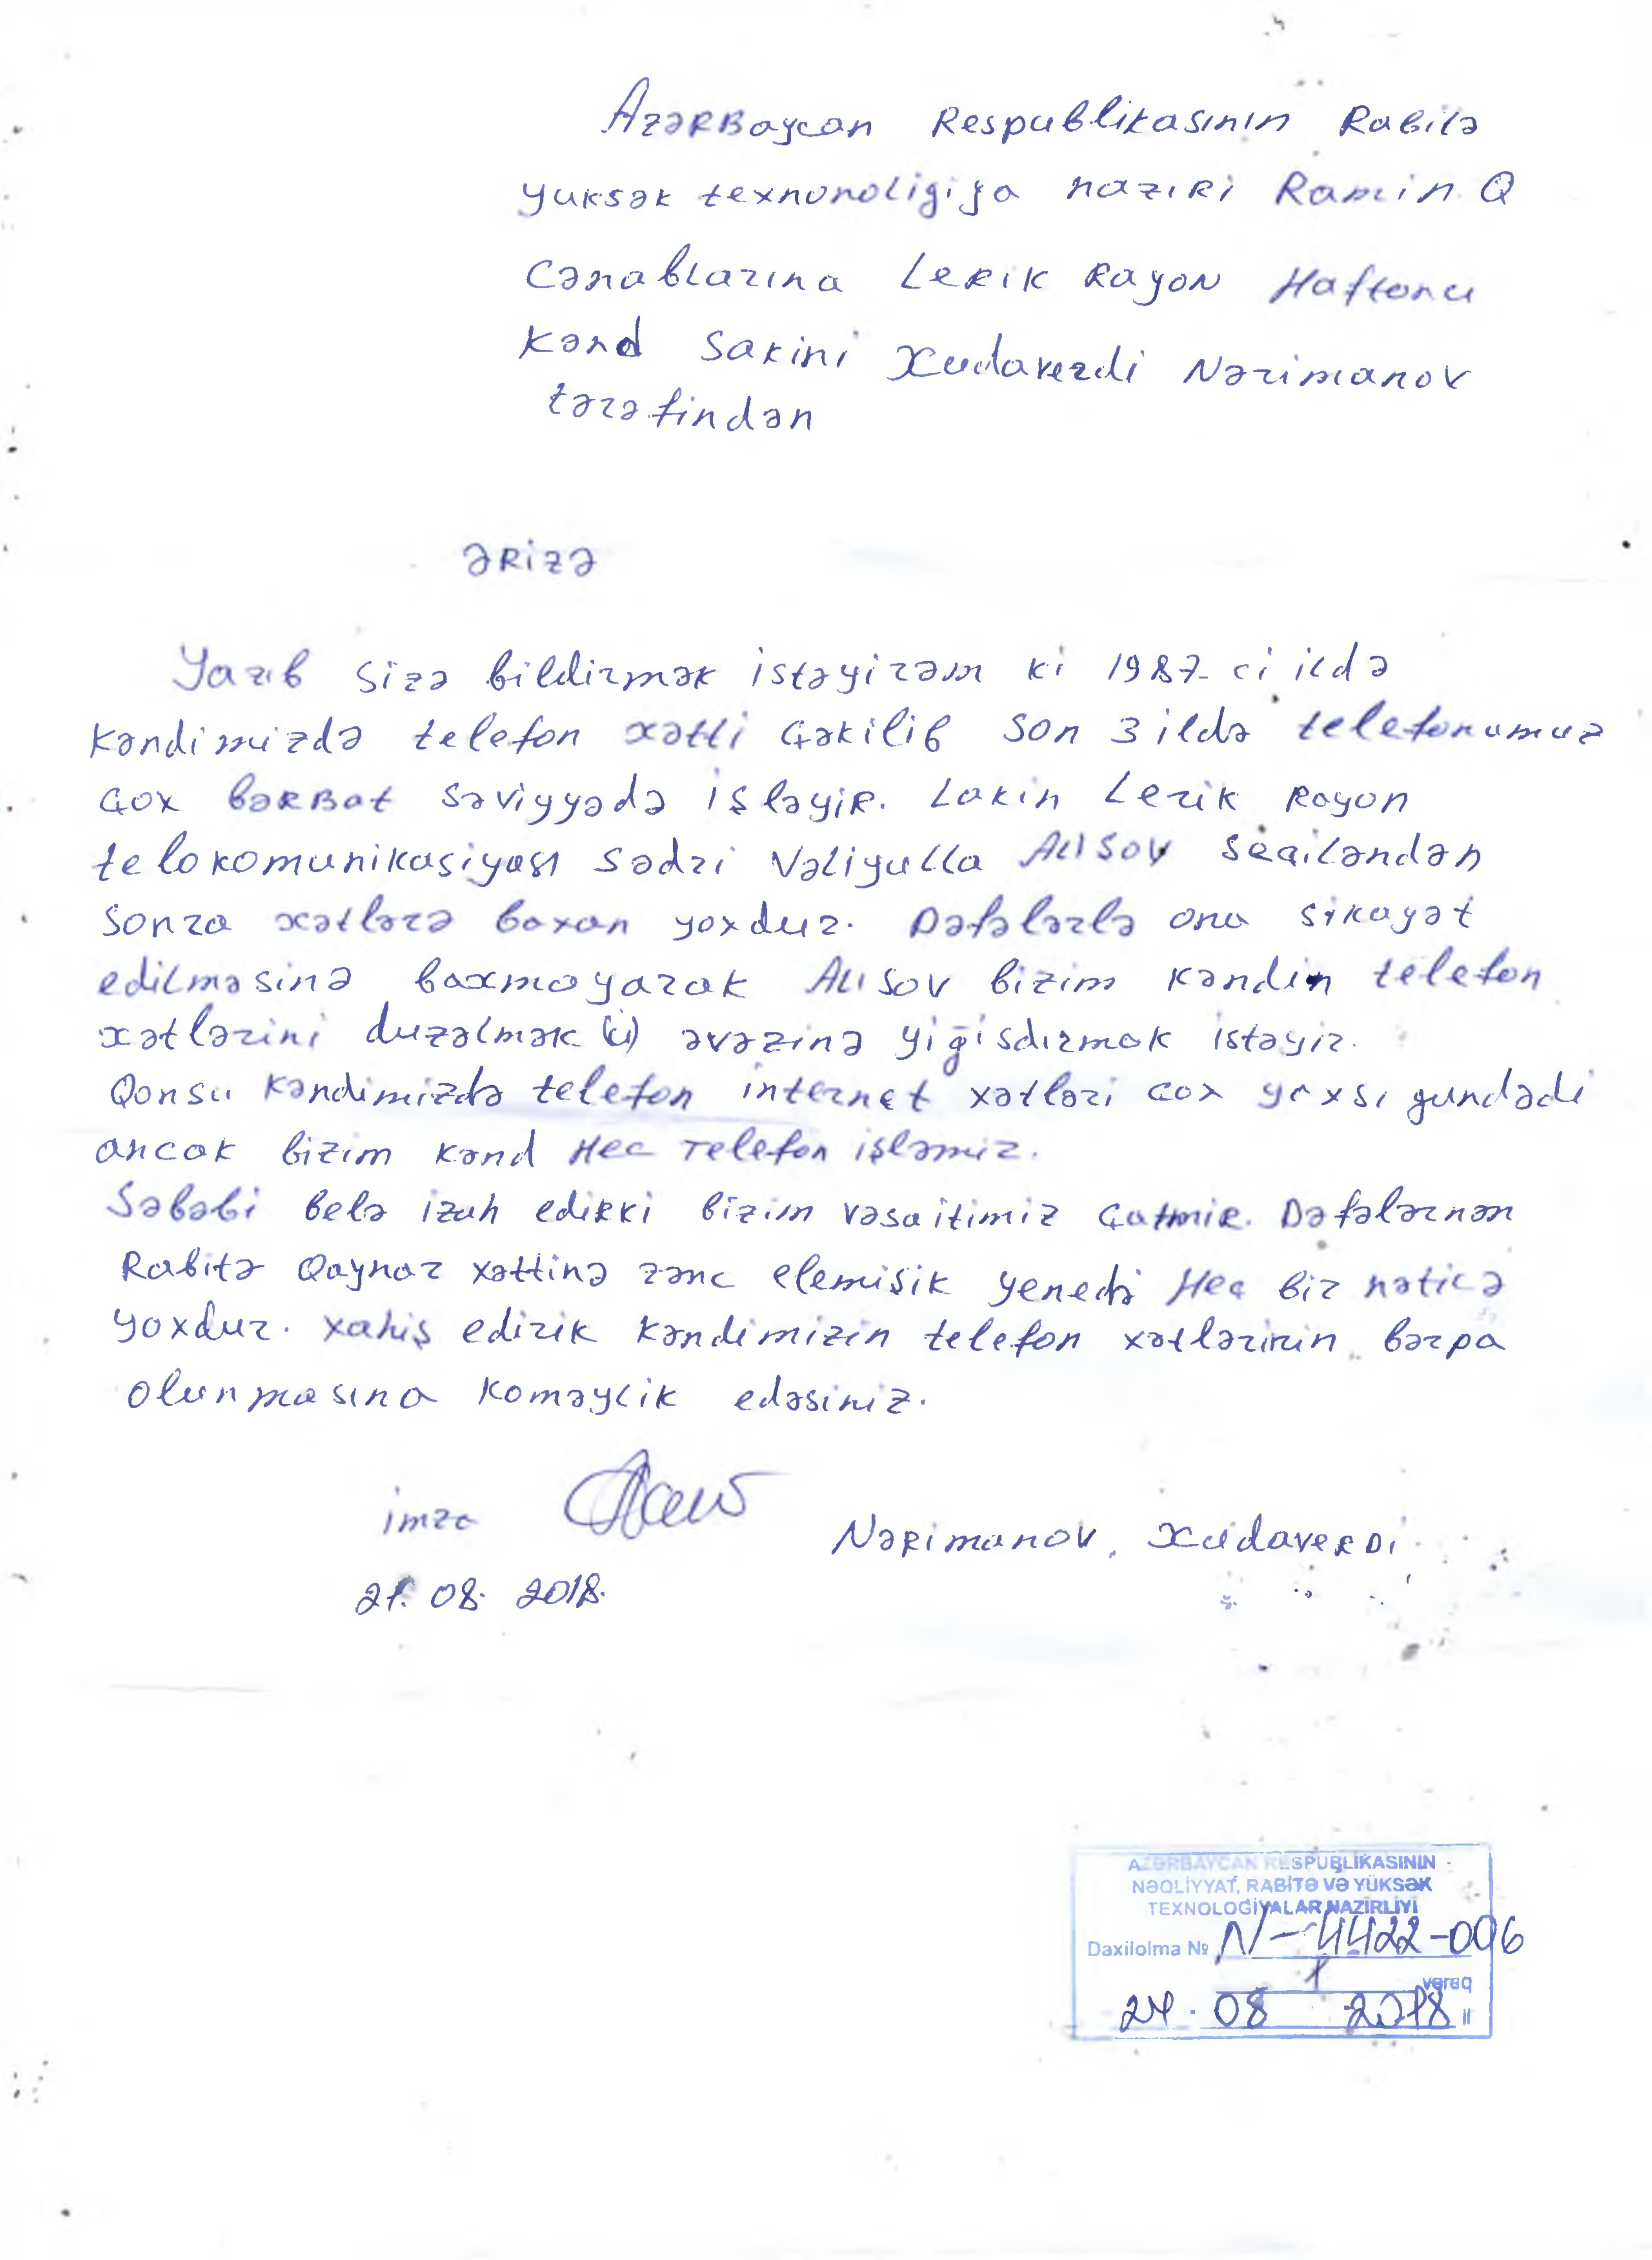 Azərbaycan Respublikasının Rabitə
yuksək texnonoligiya naziri Ramin. Q
Cənablarına Lerik Rayon Haftonu
Kənd Sakini Xudaverdi Nərimanov
tərəfindən
ƏRizə
Yazıb sizə bildirmək istəyirəm ki 1987-ci ildə
Kəndimizdə telefon xətti çəkilib son 3 ildə telefonumuz
çox bərbat səviyyədə işləyir. Lakin Lerik Rayon
telokomunikasiyası sədri Vəliyulla Alısov seçiləndən
sonra xətlərə baxan yoxdur. Dəfələrlə ona sikayət
edilməsinə baxmayarak Alısov bizim kəndin telefon
xətlərini duzəlmək (i) əvəzinə yiğisdırmak istəyir.
Qonsu kəndimizdə telefon internet xətləri cox yaxsı gundədi
ancak bizim kənd Hec Telefon işləmir.
Səbəbi belə izah edirki bizim vəsaitimiz çatmir. Dəfələrnən
Rabitə Qaynar xəttinə zənc elemişik yenedə Heç bir nəticə
yoxdur. xahiş edirik kəndimizin telefon xətlərinin bərpa
olunmasına koməylik edəsiniz.
imza
Nərimanov. Xudaverdi
21. 08. 2018.
AZƏRBAYCAN RESPUBLİKASININ
NƏQLİYYAT, RABİTƏ VƏ YÜKSƏK
TEXNOLOGİYALAR NAZİRLİYİ
Daxilolma № N-4422-006
1 vərəq
24. 08 2018 il